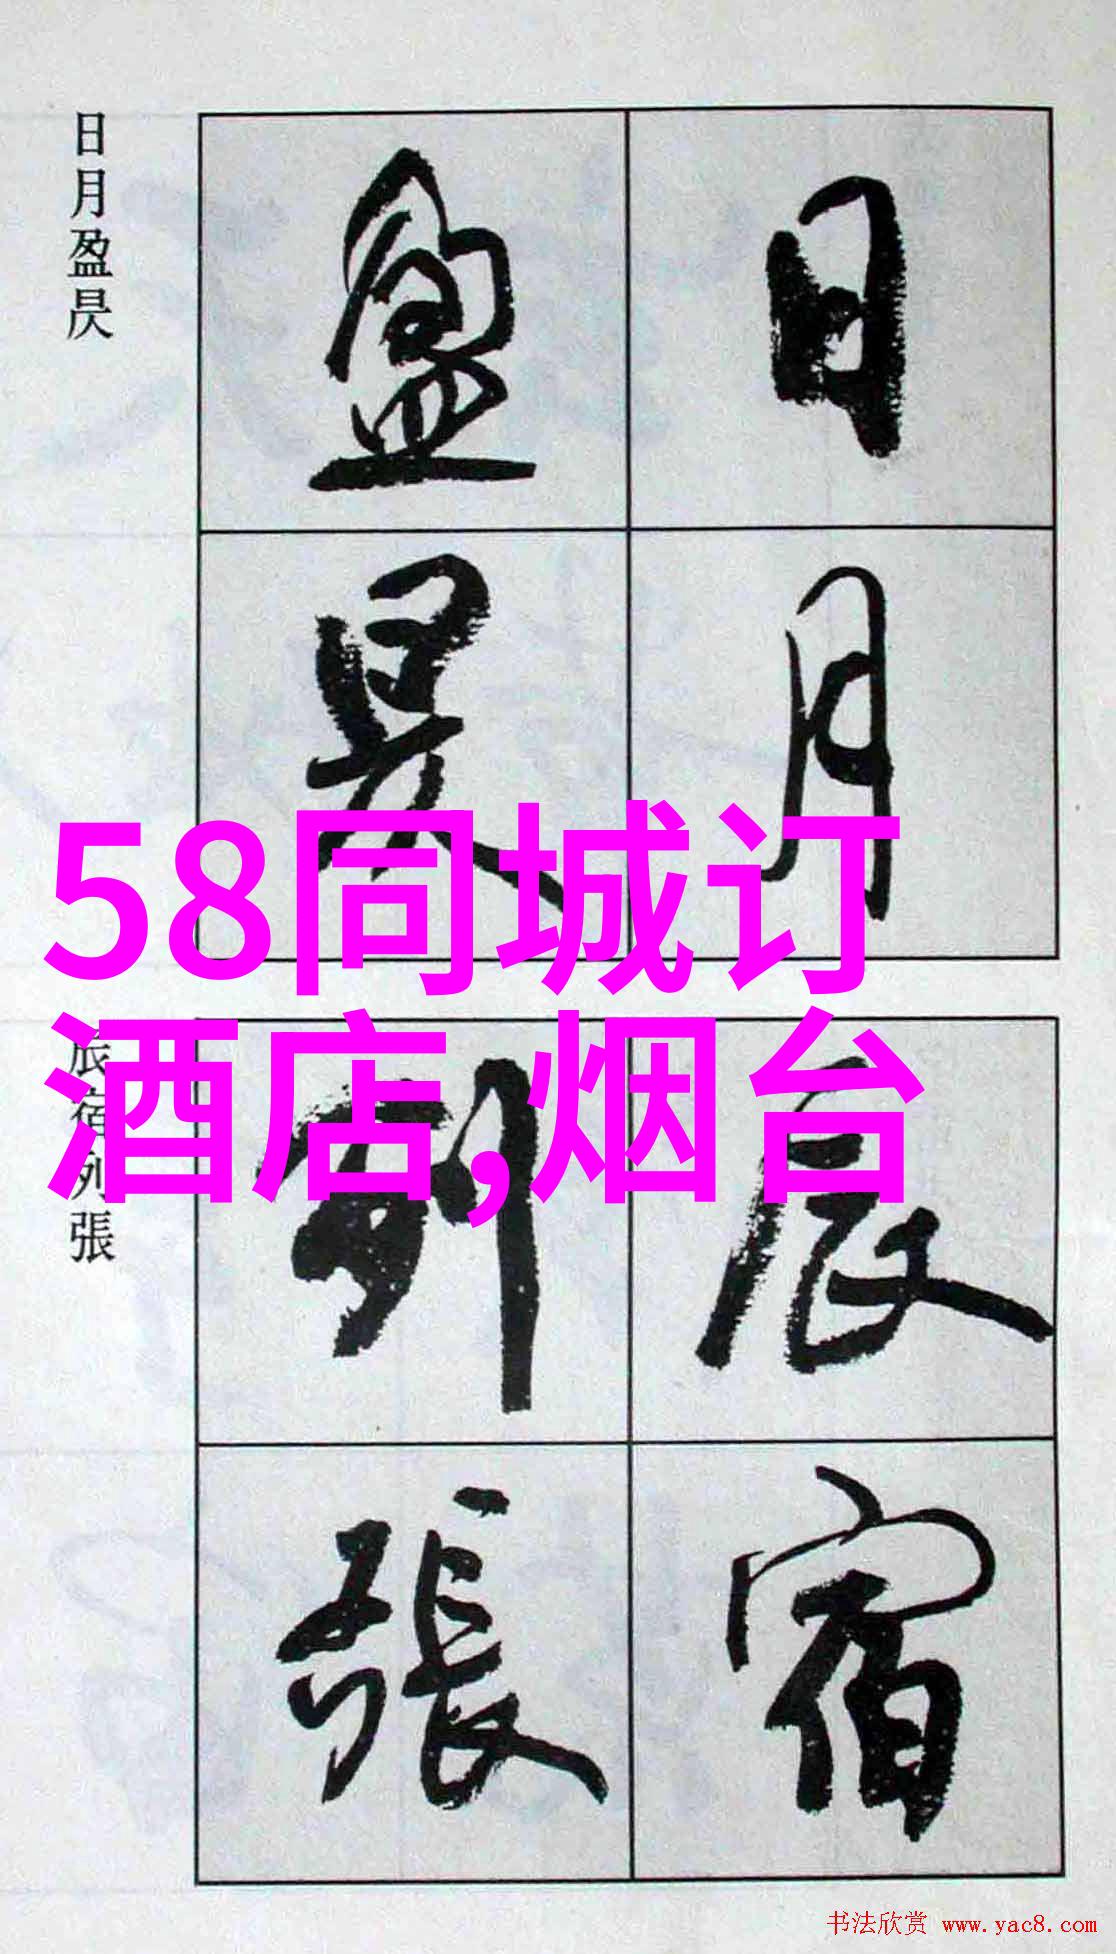 日月
盈昃
日月盈昃
58同城订
酒店,烟台
辰宿
列張
辰宿列張
书法欣赏 www.yac8.com